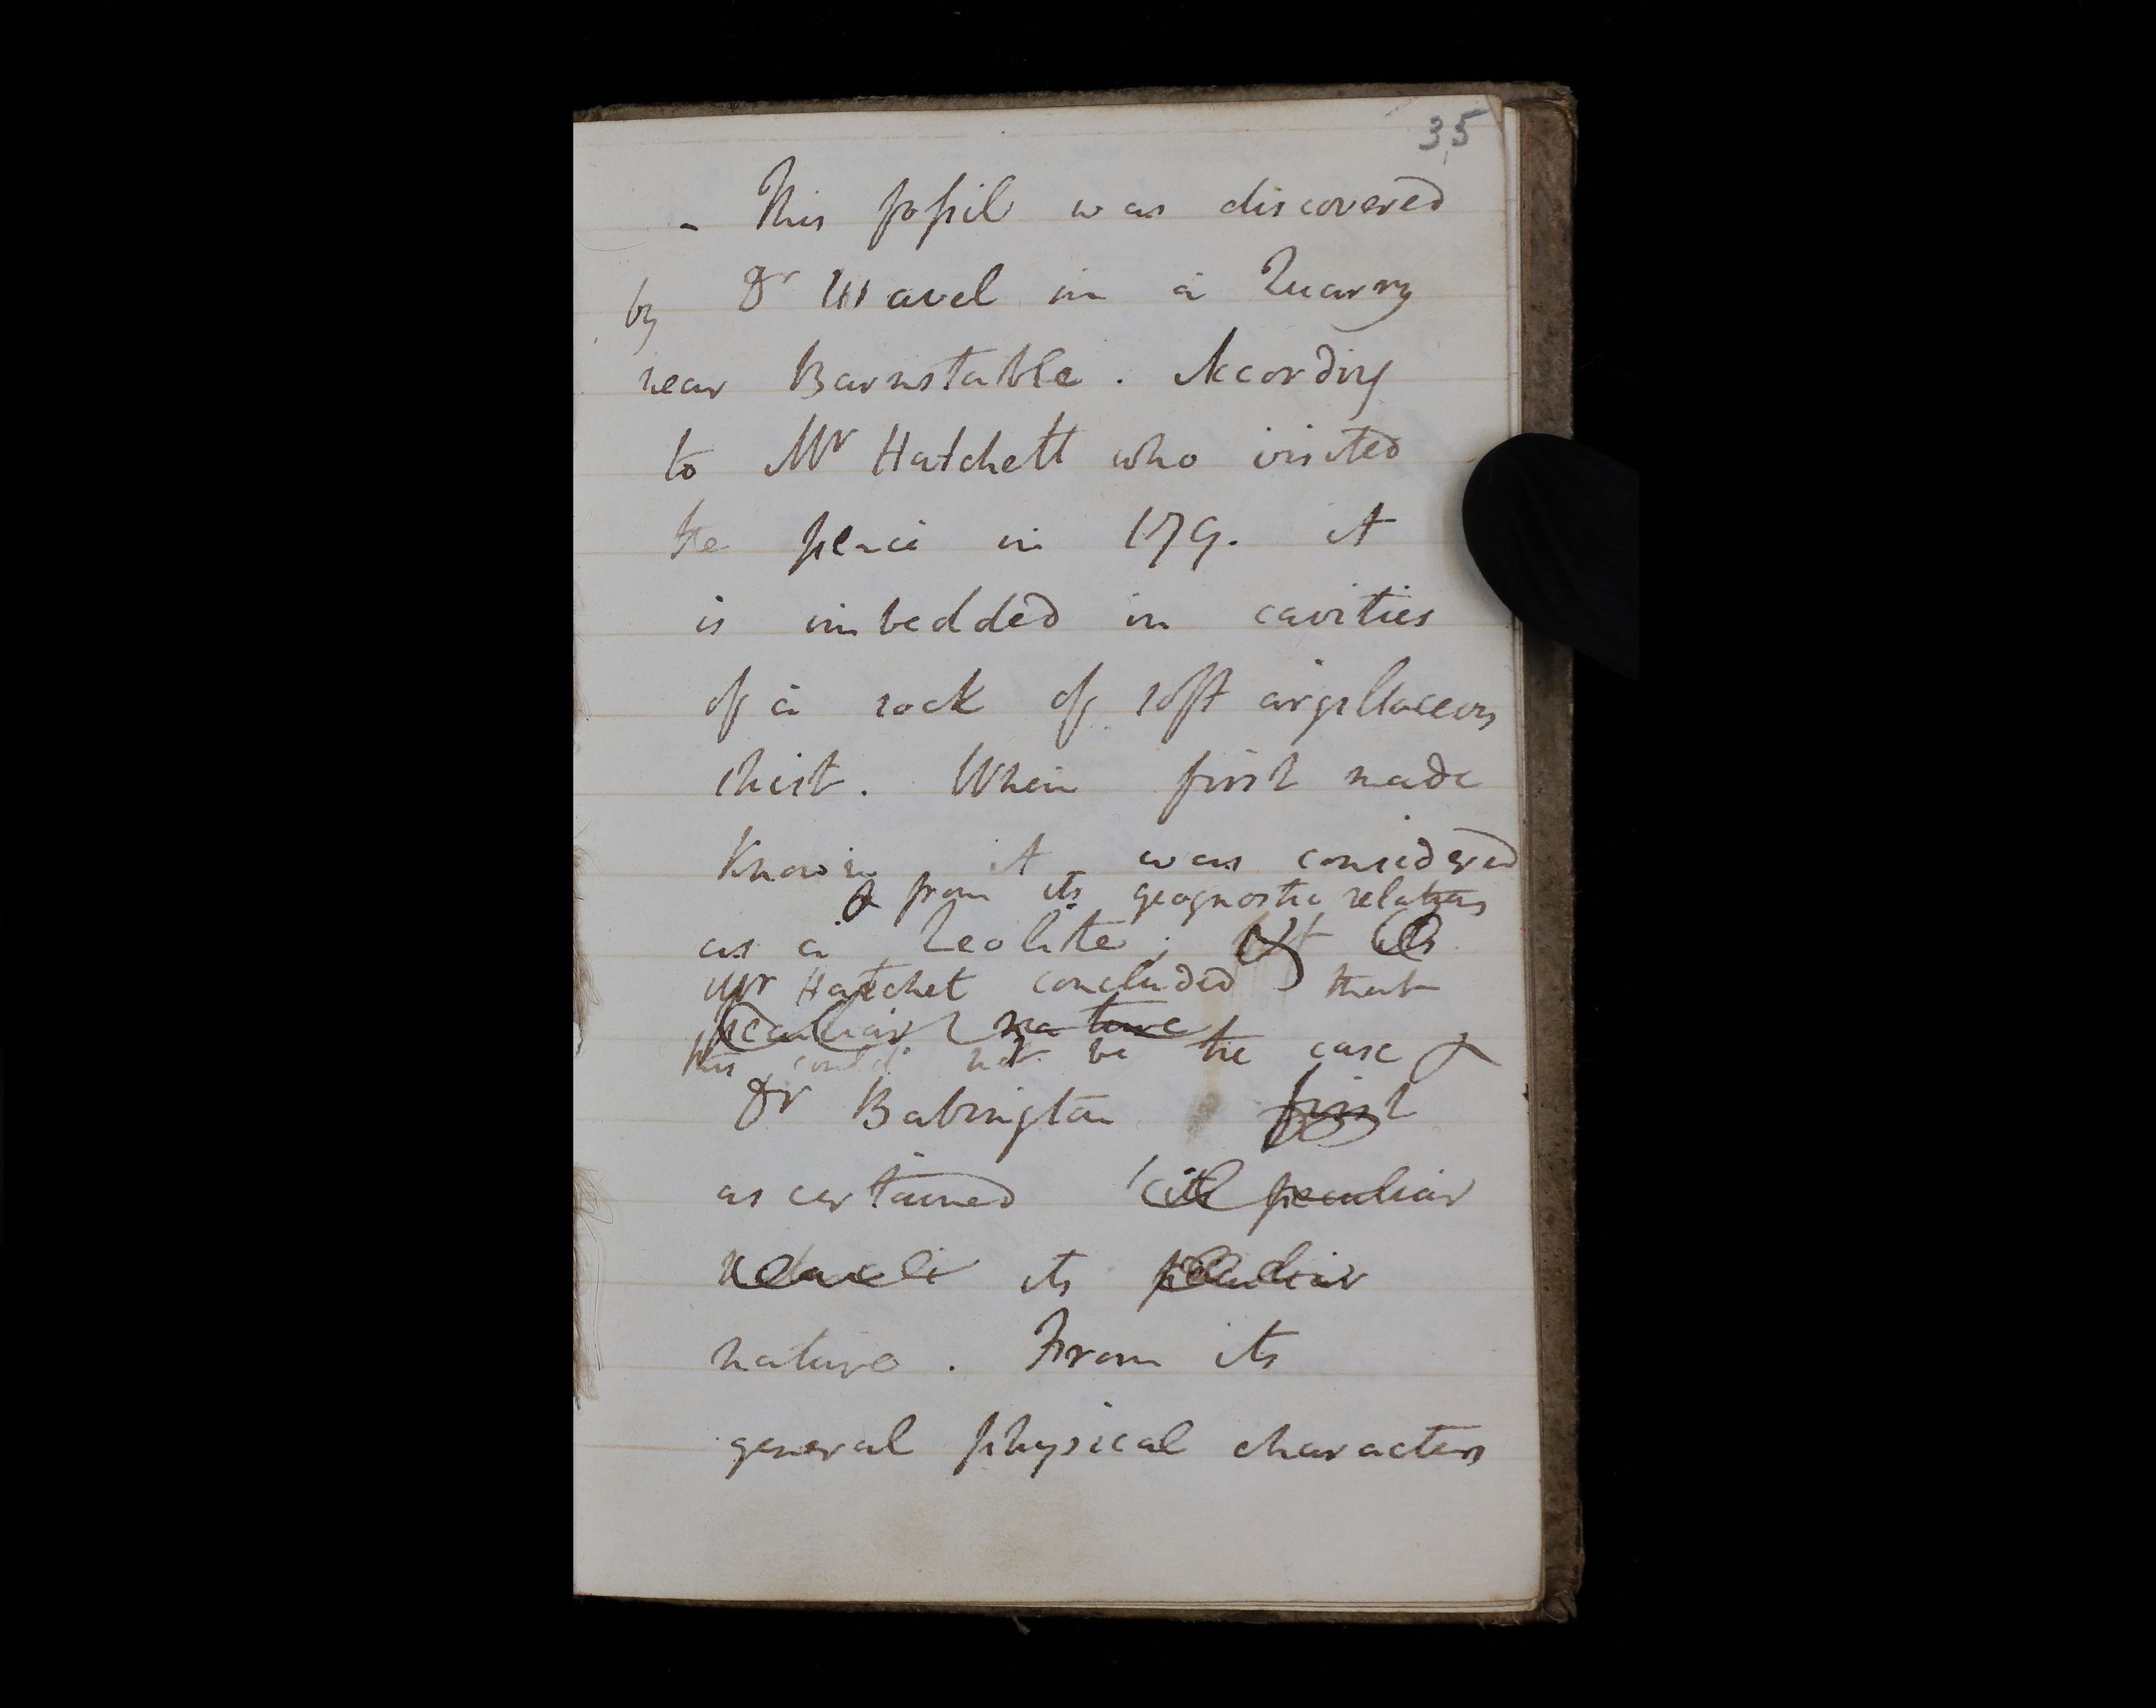 35
- This fossil was discovered
by Dr Wavel in a Quarry
near Barnstable. According
to Mr Hatchett who visited
the place in 179. it
is imbedded in cavities
of a rock of soft argillaceous
shist. When first made
Known it was considered
& from its geognostic relations
as a Zeolite; but its
Mr Hatchet concluded that
peculiar nature
this could not be the case &
Dr Babington first
ascertained its peculiar
nature its peculiar
nature. From its
general physical characters